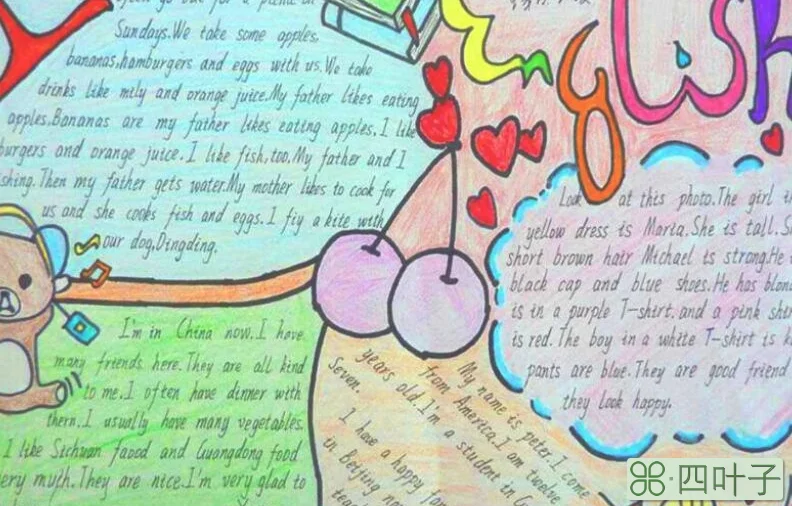 often go out for a picnic on
Sundays.We take some apples,
bananas,hamburgers and eggs with us.We take
drinks like mily and orange juice.My father likes eating
apples.Bananas are my father likes eating apples,I like
burgers and orange juice.I like fish,too.My father and I
shing.Then my father gets water.My mother likes to cook for
us and she cooks fish and eggs.I fiy a kite with
our dog,Dingding.
English
Look at this photo.The girl in
yellow dress is Maria.She is tall.S
short brown hair Michael is strong.He i
black cap and blue shoes.He has blond
is in a purple T-shirt.and a pink shir
is red.The boy in a white T-shirt is k
pants are blue.They are good friend
they look happy.
A
I'm in China now.I have
many friends here.They are all kind
to me.I often have dinner with
them.I usually have many vegetables.
I like Sichuan faood and Guangdong food
very myth.They are nice.I'm very glad to
My name is peter.I come
from America.I am twelve
years old.I'm a student in G
Seven.
I have a happy fam
in Beijing now
四叶子